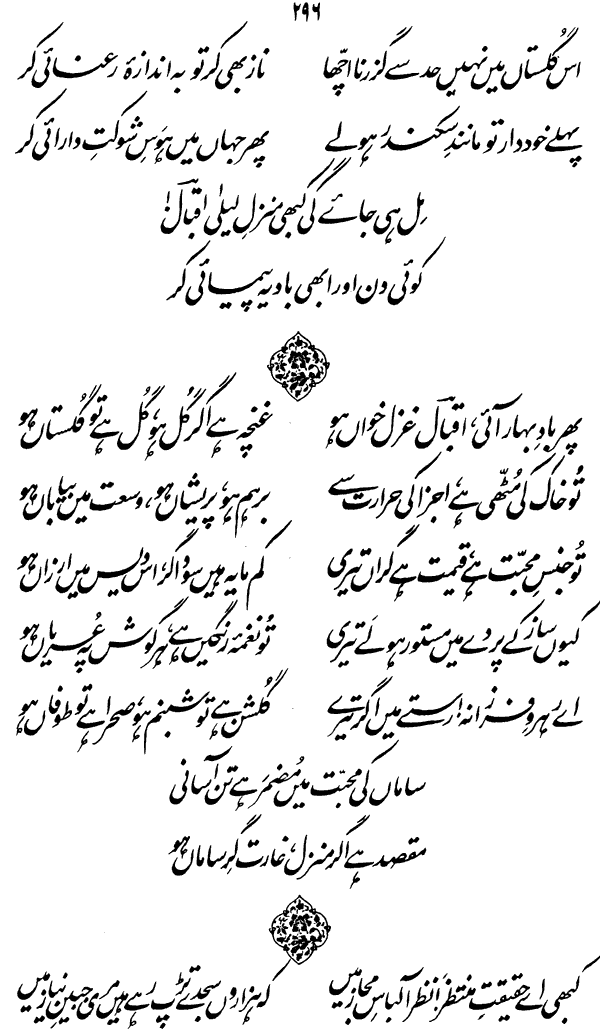 ۲۹۶
اس گلستاں میں نہیں حد سے گزرنا اچھّا ناز بھی کر تو بہ اندازۂ رعنائی کر
پہلے خوددار تو مانندِ سکندر ہو لے پھر جہاں میں ہَوسِ شوکتِ دارائی کر
مِل ہی جائے گی کبھی منزلِ لیلٰی اقبالؔ!
کوئی دن اور ابھی بادیہ پیمائی کر
پھر بادِ بہار آئی، اقبالؔ غزل خواں ہو غنچہ ہے اگر گُل ہو، گُل ہے تو گُلستاں ہو
تُو خاک کی مُٹھّی ہے، اجزا کی حرارت سے برہم ہو، پریشاں ہو، وسعت میں بیاباں ہو
تُو جنسِ محبّت ہے، قیمت ہے گراں تیری کم مایہ ہیں سوداگر، اس دیس میں ارزاں ہو
کیوں ساز کے پردے میں مستور ہو لَے تیری تُو نغمۂ رنگیں ہے، ہر گوش پہ عُریاں ہو
اے رہروِ فرزانہ! رستے میں اگر تیرے گلشن ہے تو شبنم ہو، صحرا ہے تو طوفاں ہو
ساماں کی محبّت میں مُضمَر ہے تن آسانی
مقصد ہے اگر منزل، غارت گرِ ساماں ہو
کبھی اے حقیقتِ منتظَر! نظر آ لباسِ مجاز میں کہ ہزاروں سجدے تڑپ رہے ہیں مری جبینِ نیاز میں